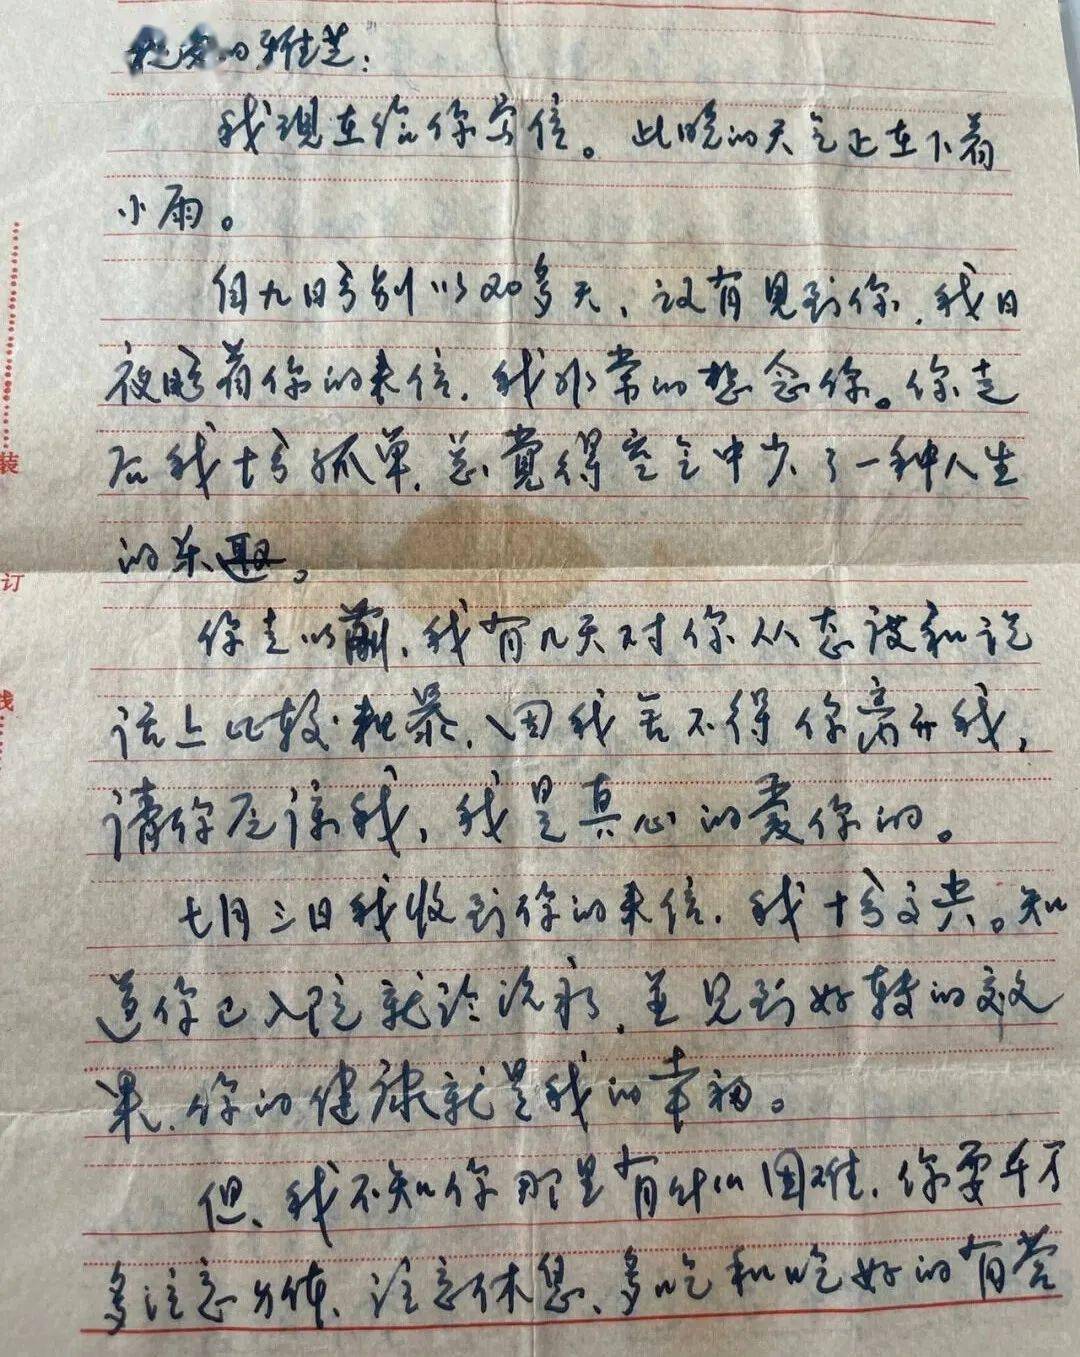 亲爱的雅芝：
我现在给你写信。此晚的天气正在下着
小雨。
自九日分别以20多天，没有见到你，我日
夜盼着你的来信，我非常的想念你。你走
后我十分孤单，总觉得空气中少了一种人生
的乐趣。
你走以前，我有几天对你从态度和说
话上比较粗暴，因我舍不得你离开我，
请你原谅我，我是真心的爱你的。
七月三日我收到你的来信，我十分高兴。知
道你已入院就诊治疗，并见到好转的效
果，你的健康就是我的幸福。
但，我不知你那里有什么困难，你要千万
多注意身体，注意休息，多吃和吃好的有营
装
订
线